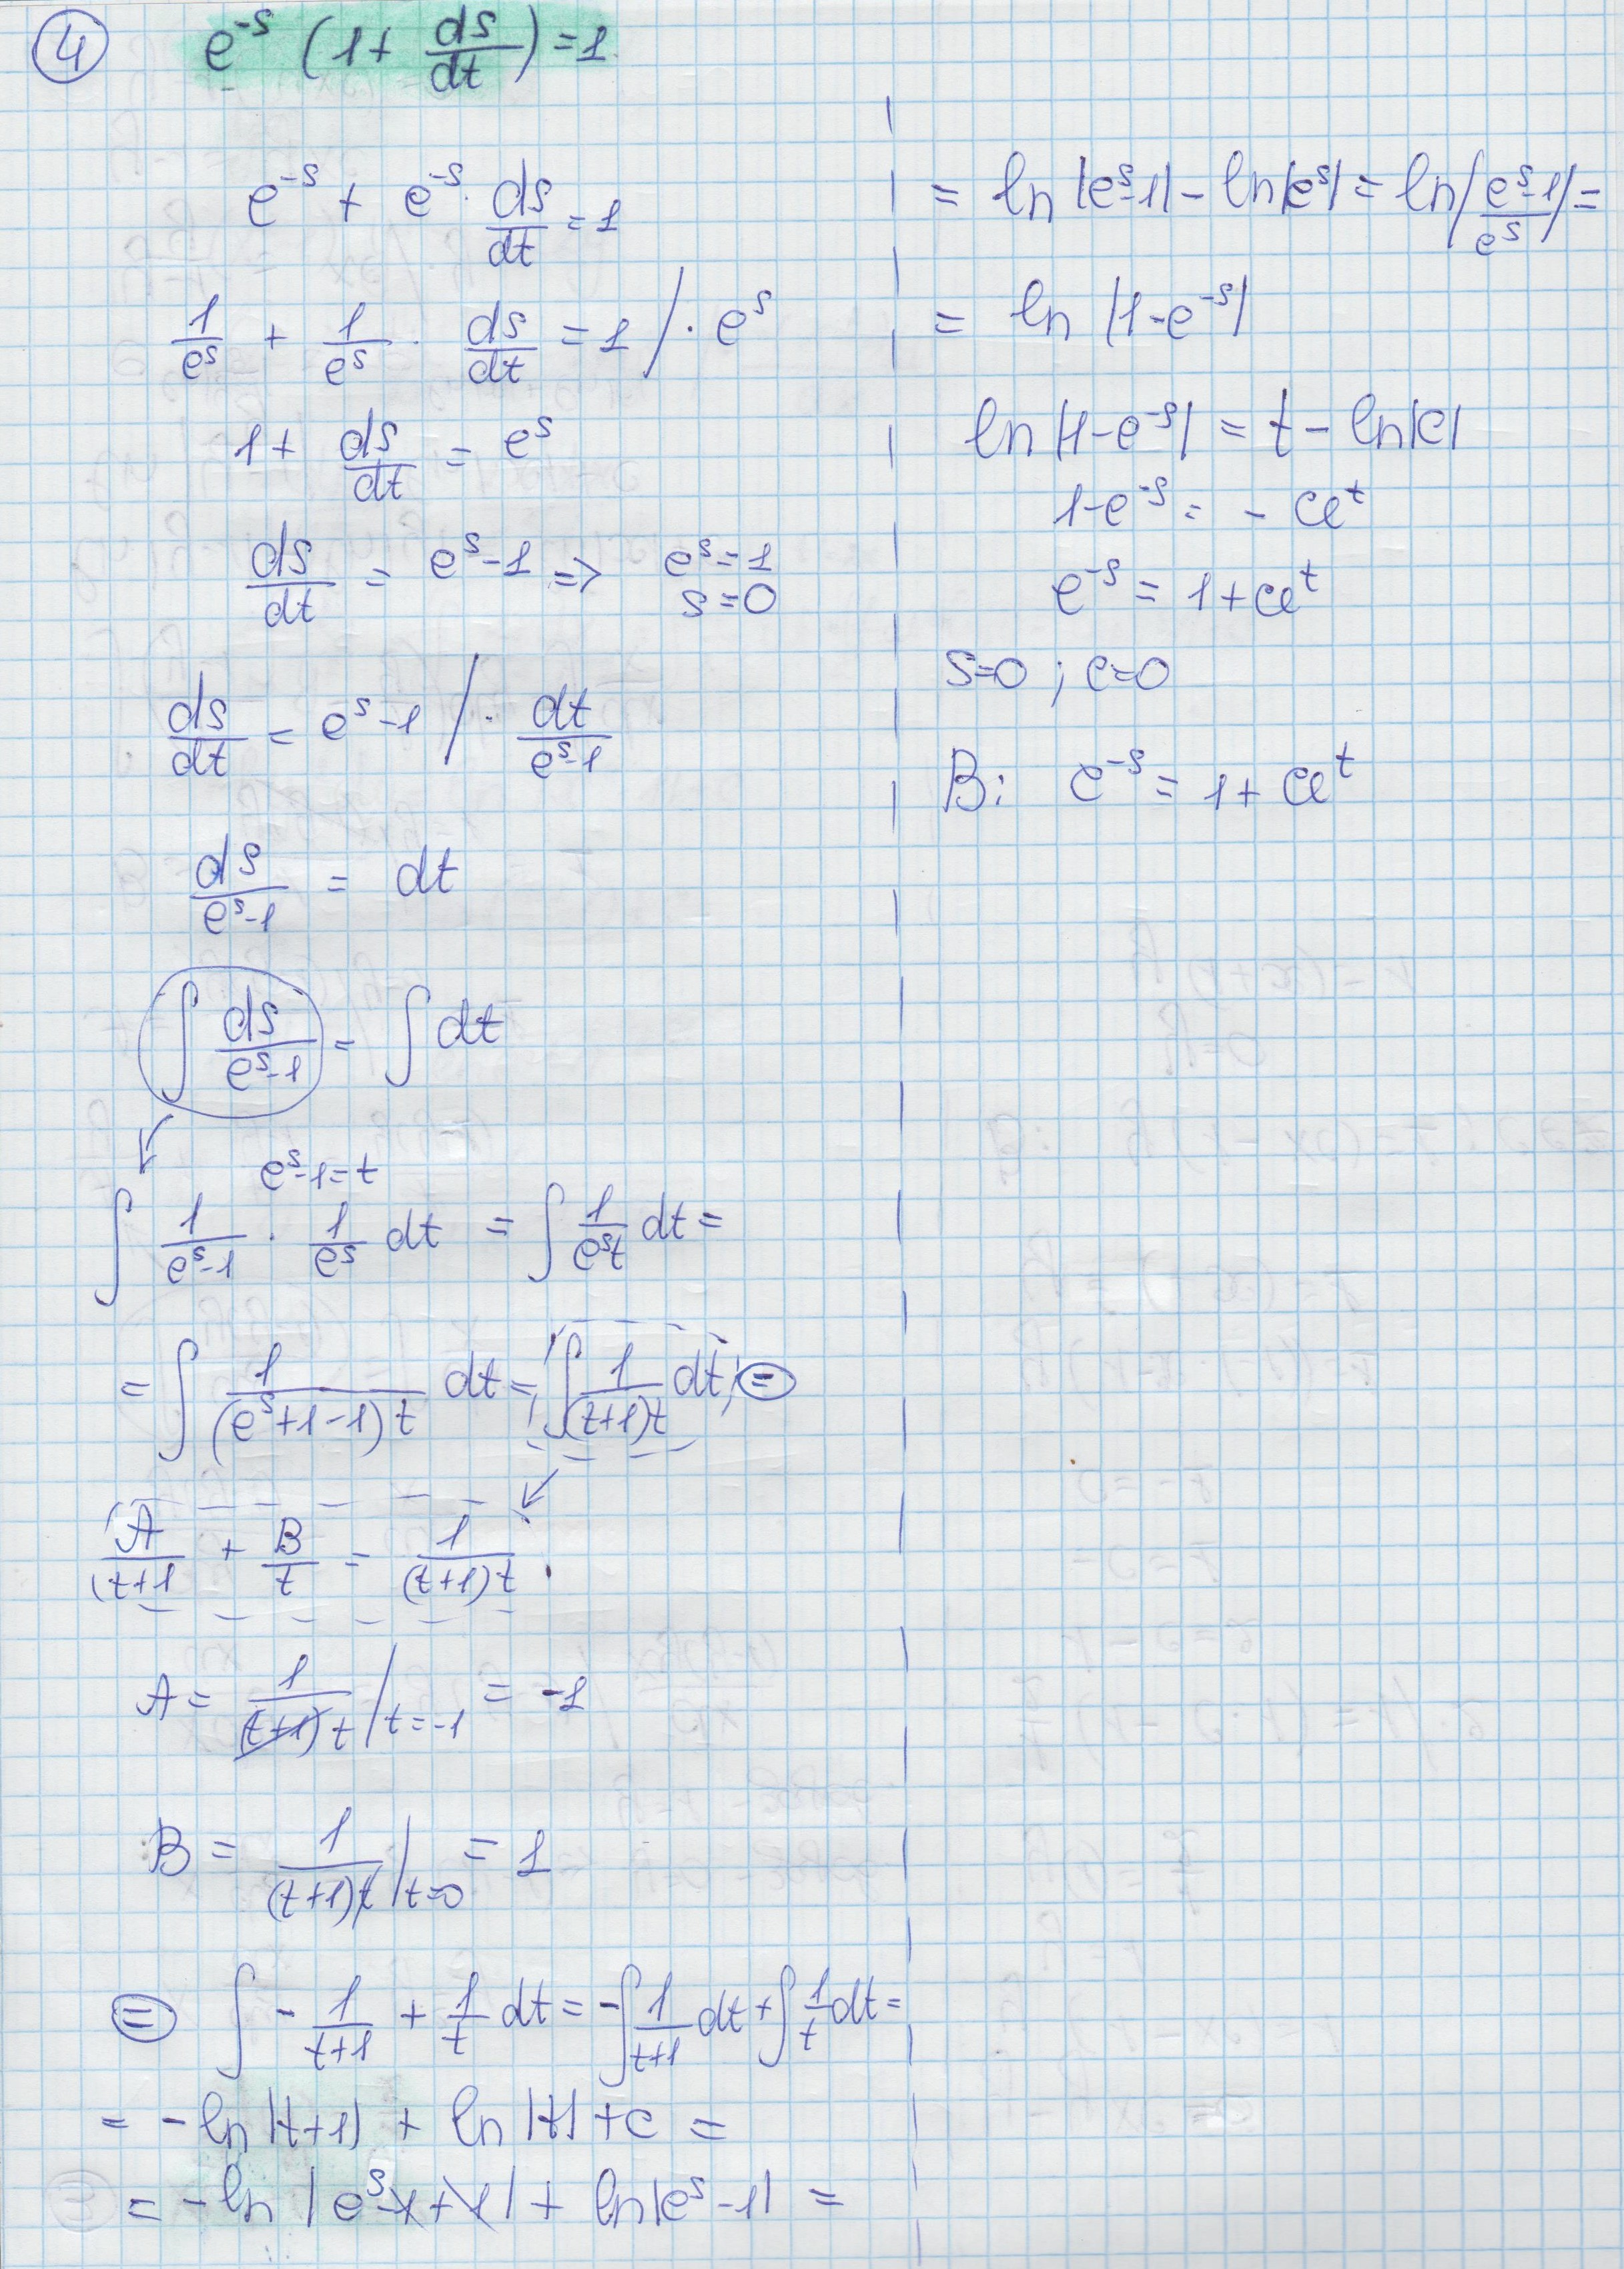 4 e^{-s} (1 + ds/dt) = 1
e^{-s} + e^{-s} · ds/dt = 1
1/e^s + 1/e^s · ds/dt = 1 / · e^s
1 + ds/dt = e^s
ds/dt = e^s - 1 => e^s = 1
s = 0
ds/dt = e^s - 1 / · dt/(e^s - 1)
ds/(e^s - 1) = dt
∫ ds/(e^s - 1) = ∫ dt
e^s - 1 = t
∫ 1/(e^s - 1) · 1/e^s dt = ∫ 1/(e^s t) dt =
= ∫ 1/((e^s + 1 - 1) t) dt = ∫ 1/((t+1)t) dt =
A/(t+1) + B/t = 1/((t+1)t)
A = 1/((t+1)t) / t = -1 = -1
B = 1/((t+1)t) / t=0 = 1
= ∫ - 1/(t+1) + 1/t dt = -∫ 1/(t+1) dt + ∫ 1/t dt =
= - ln |t+1| + ln |t| + c =
= - ln |e^s - 1 + 1| + ln |e^s - 1| =
= ln |e^s - 1| - ln |e^s| = ln |(e^s - 1)/e^s| =
= ln |1 - e^{-s}|
ln |1 - e^{-s}| = t - ln |c|
1 - e^{-s} = - ce^t
e^{-s} = 1 + ce^t
s=0 ; c=0
B: e^{-s} = 1 + ce^t